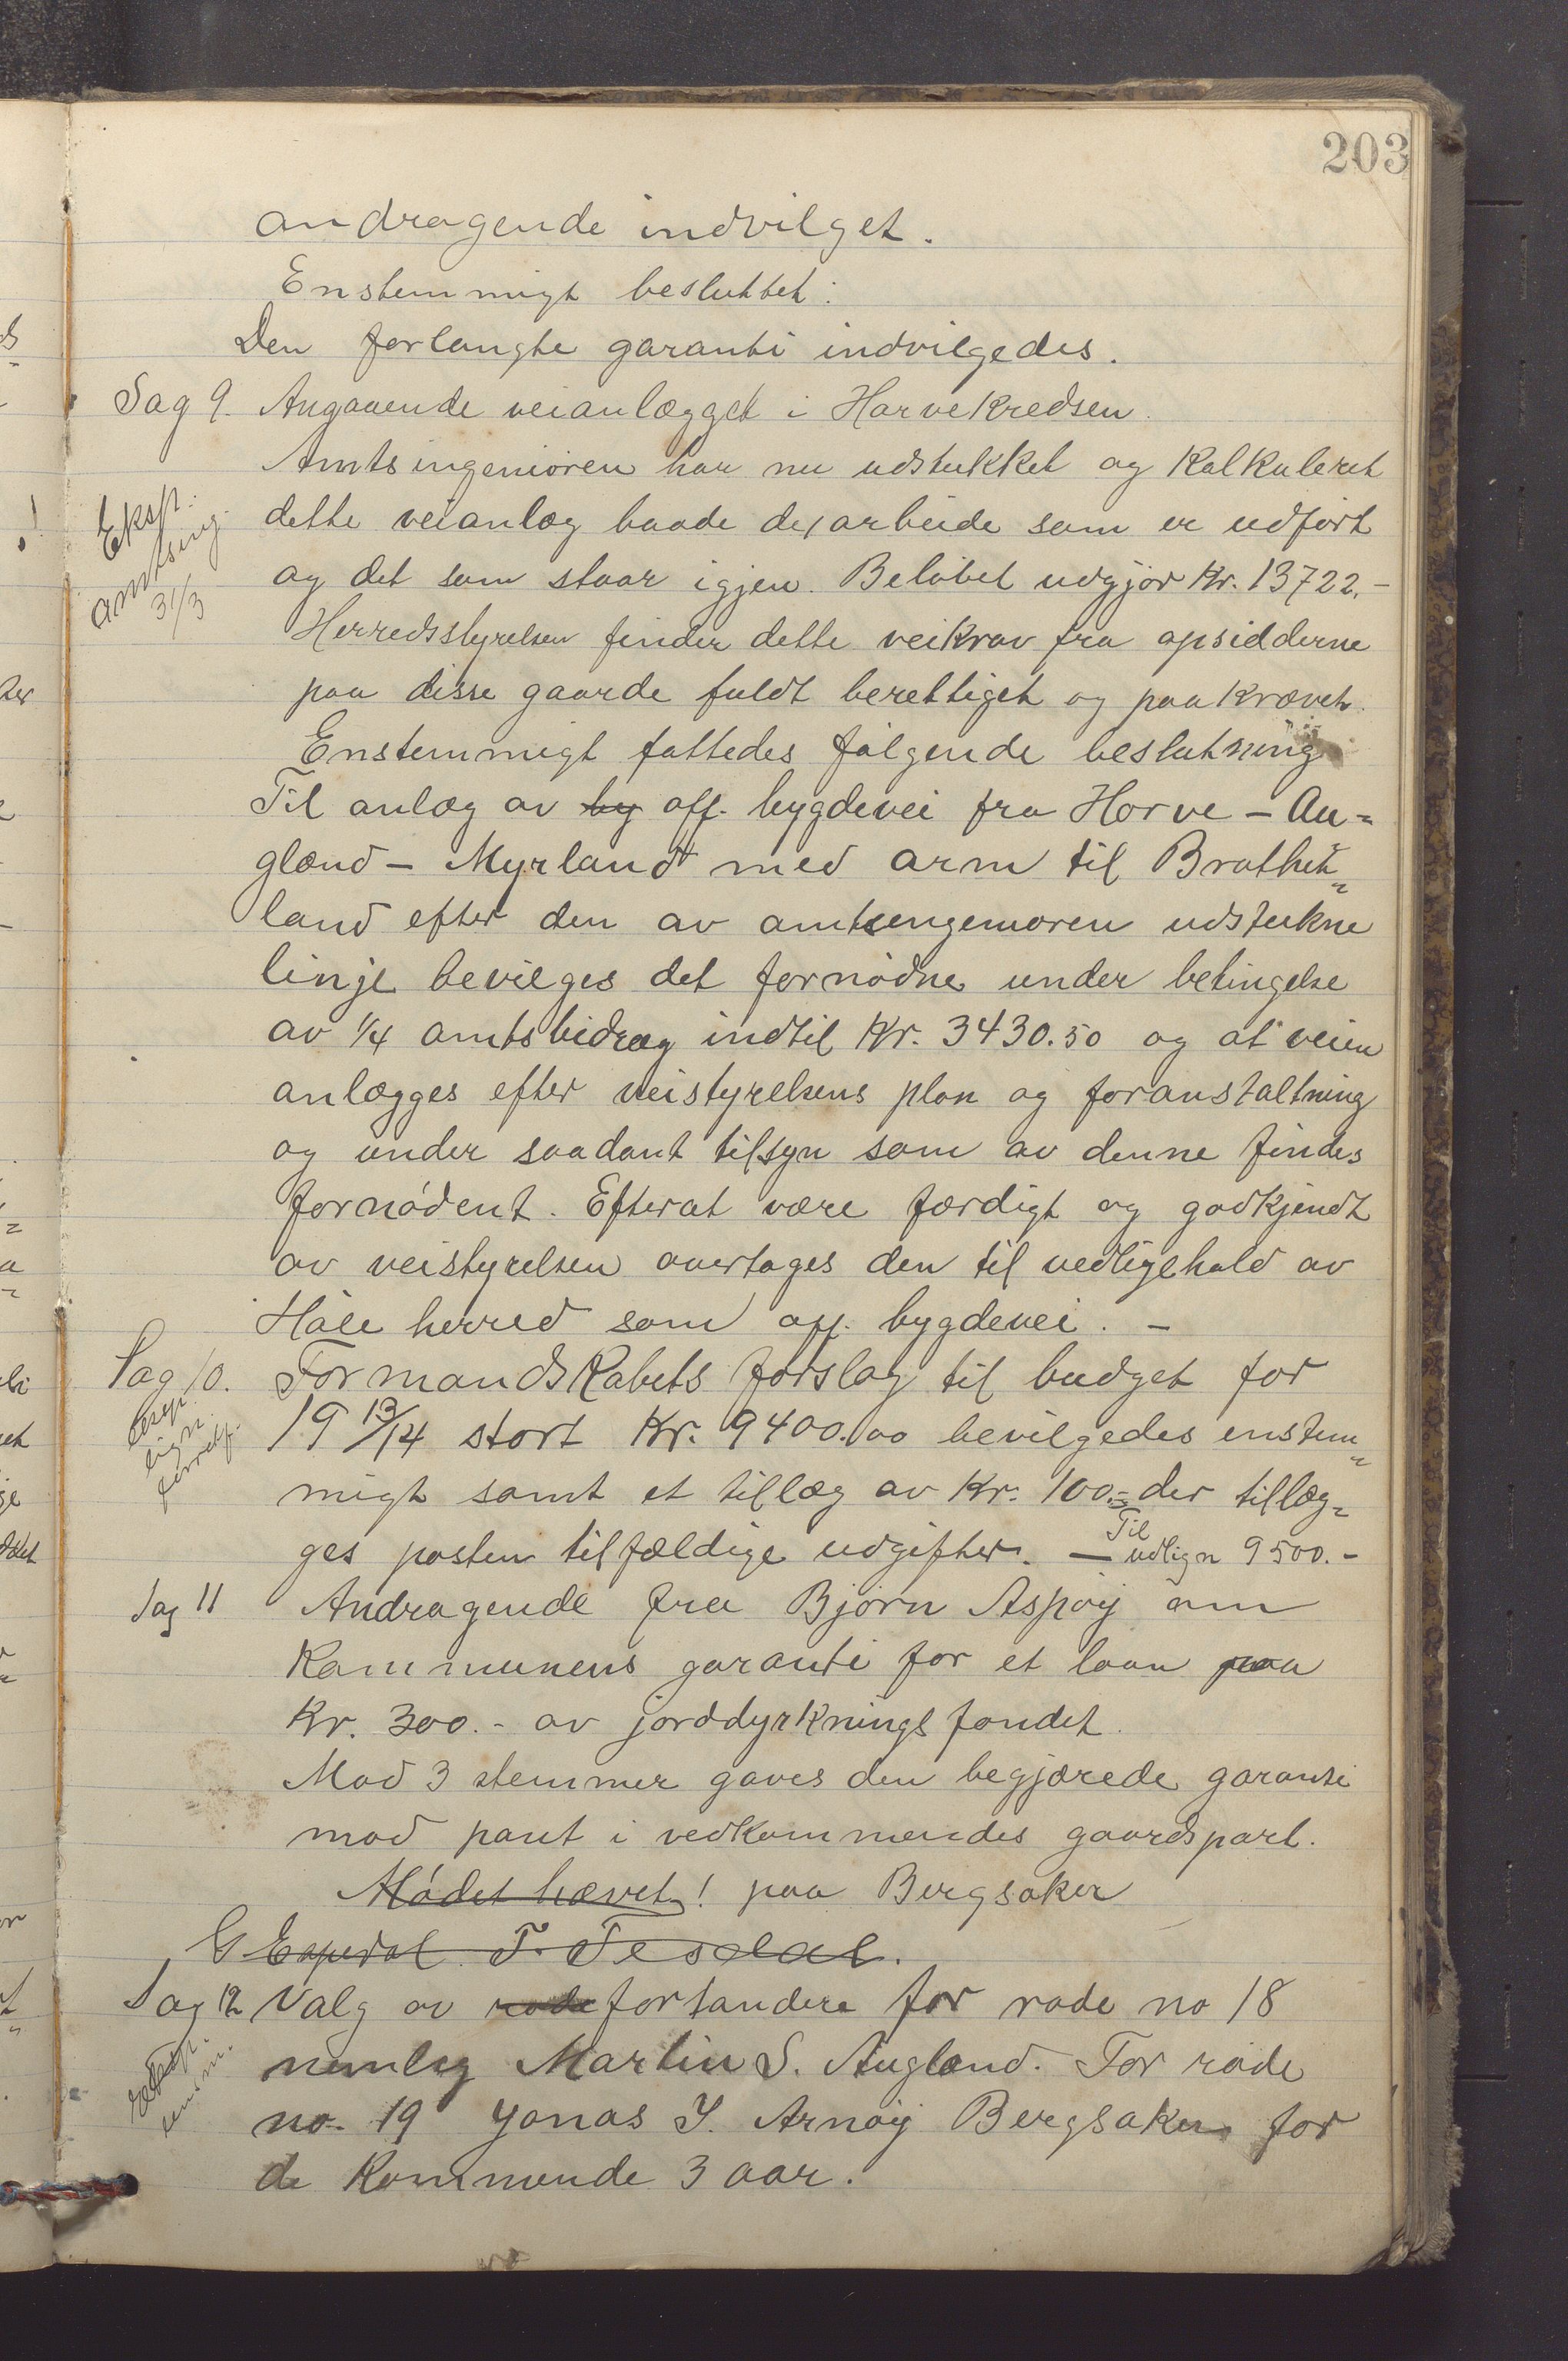 203
andragende indvilget.
Enstemmigt besluttet:
Den forlangte garanti indvilgedes.
Sag 9. Angaaende veianlægget i Harvekredsen.
Amtsingeniøren har nu udstukket og kalkuleret
Eksp. amtsing. 31/3
dette veianlæg baade det arbeide som er udført
og det som staar igjen. Beløbet udgjør Kr. 13722.-
Herredsstyrelsen finder dette veikrav fra opsidderne
paa disse gaarde fuldt berettiget og paakrævet.
Enstemmigt fattedes følgende beslutning
Til anlæg av by off. bygdevei fra Horve – Au=
glænd – Myrland med arm til Brathet=
land efter den av amtsingeniøren udstukne
linje bevilges det fornødne under betingelse
av 1/4 amtsbidrag indtil Kr. 3430.50 og at veien
anlægges efter veistyrelsens plan og foranstaltning
og under saadant tilsyn som av denne findes
fornødent. Efterat være færdigt og godkjendt
av veistyrelsen overtages den til vedligehold av
Høle herred som off. bygdevei. –
Sag 10. Formandskabets forslag til budget for
19 13/14 stort Kr. 9400.00 bevilgedes enstem=
migt samt et tillæg av Kr. 100.- der tillæg=
ges posten tilfældige udgifter. – Til udlign 9500.-
Sag 11 Andragende fra Bjørn Aspøy om
Kommunens garanti for et laan paa
Kr. 300.- av jorddyrkningsfondet.
Mod 3 stemmer gaves den begjærede garanti
mod pant i vedkommendes gaardspart.
Mødet hævet! paa Bergsaker
G Espedal T. Tesdal.
Sag 12 Valg av rode fortandere for rode no 18
nemlig Martin S. Auglænd. For rode
no. 19 Jonas J. Arnøy Bergsaker for
de kommende 3 aar.